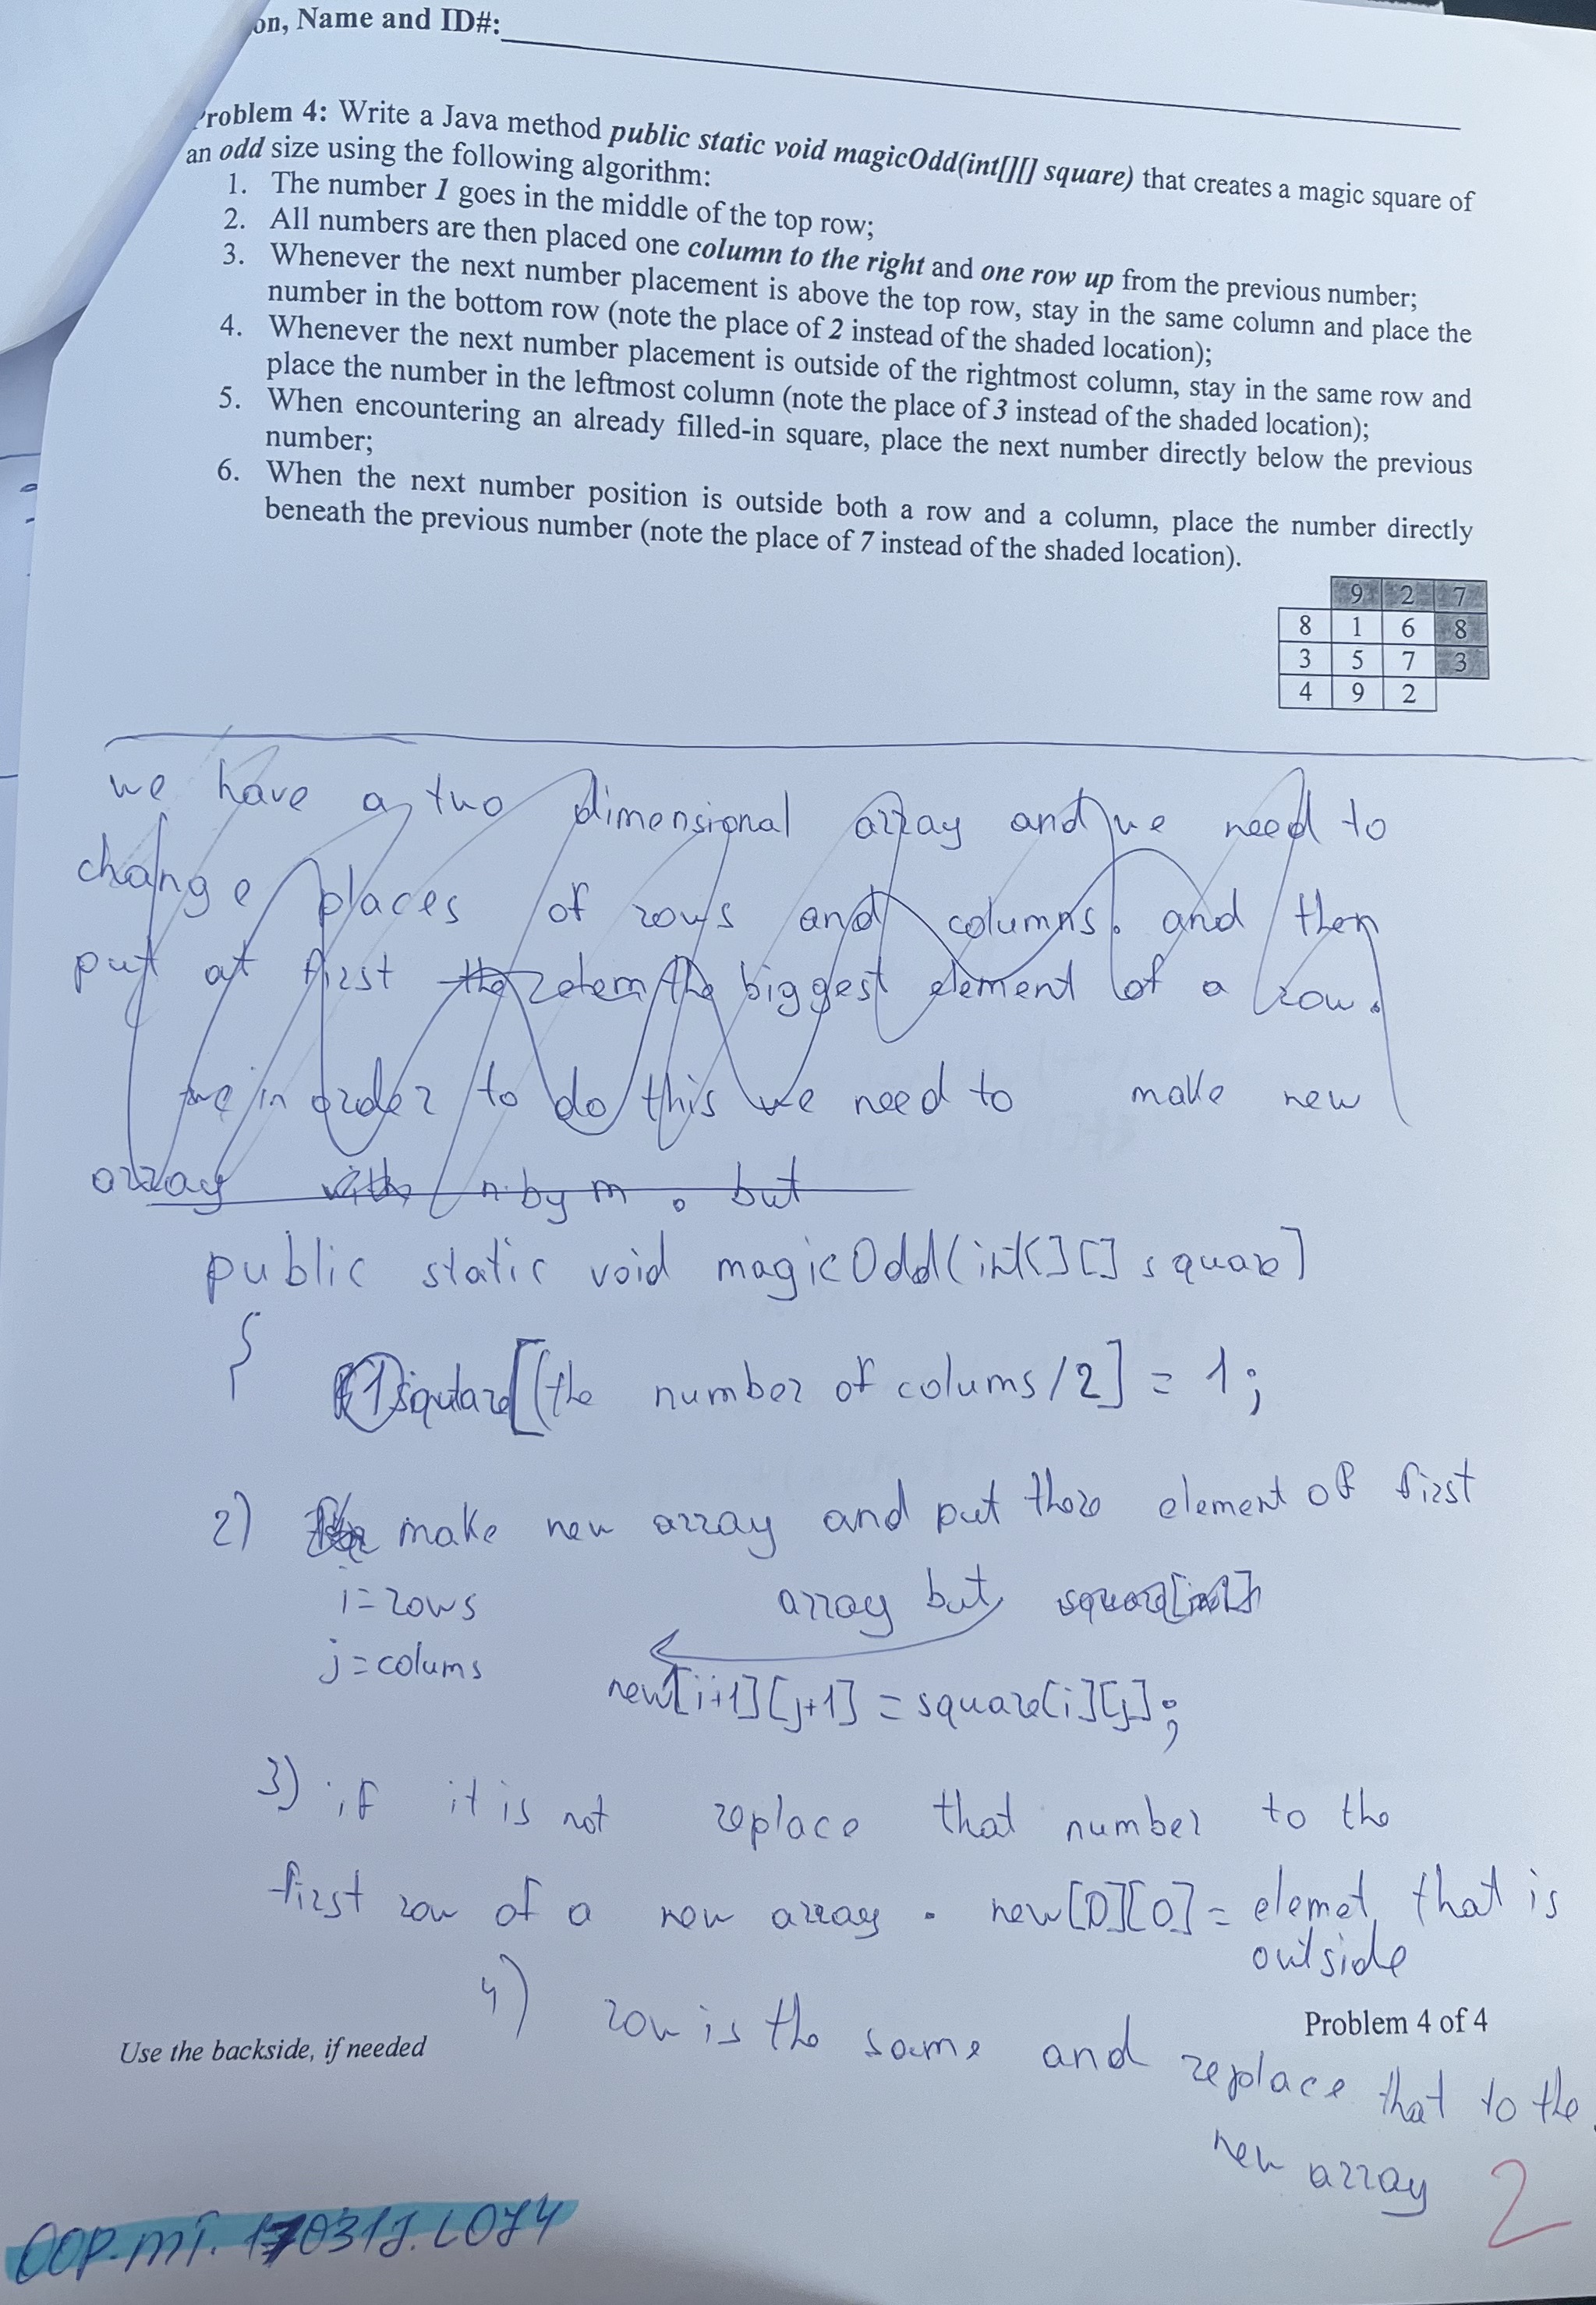 on, Name and ID#:
Problem 4: Write a Java method public static void magicOdd(int[][] square) that creates a magic square of
an odd size using the following algorithm:
1. The number 1 goes in the middle of the top row;
2. All numbers are then placed one column to the right and one row up from the previous number;
3. Whenever the next number placement is above the top row, stay in the same column and place the
number in the bottom row (note the place of 2 instead of the shaded location);
4. Whenever the next number placement is outside of the rightmost column, stay in the same row and
place the number in the leftmost column (note the place of 3 instead of the shaded location);
5. When encountering an already filled-in square, place the next number directly below the previous
number;
6. When the next number position is outside both a row and a column, place the number directly
beneath the previous number (note the place of 7 instead of the shaded location).
9 2 7
8 1 6 8
3 5 7 3
4 9 2
we have a two dimensional array and we need to
change places of rows and columns. and then
put at first the the biggest element of a row.
in order to do this we need to make new
array with n by m. but
public static void magicOdd(int[][] square]
{
1) [(the number of colums/2] = 1;
2) make new array and put there element of first
i=rows array but
j=colums
new[i+1][j+1] = square[i][j];
3) if it is not replace that number to the
first row of a new array. new[0][0] = elemet that is
outside
4) row is the same and replace that to the
new array
Problem 4 of 4
Use the backside, if needed
2
OOP.MT.170317.L074